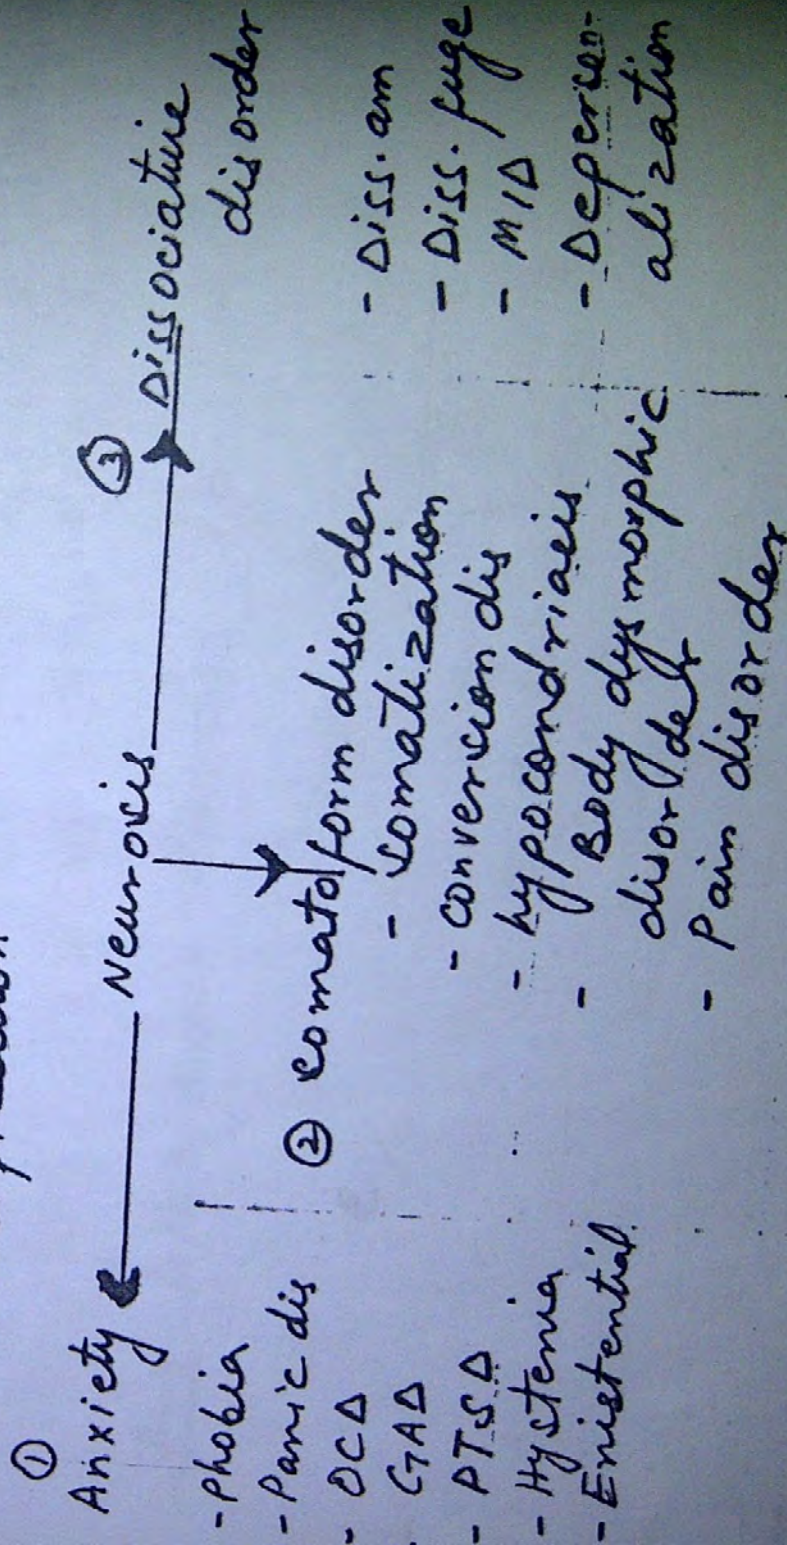 Neurosis
① Anxiety
- Phobia
- Panic dis
- OCD
GAD
- PTSD
- Hysteria
- Existential
② Somatoform disorder
- Somatization
- conversion dis
- hypocondriasis
- Body dysmorphic
disorder
- Pain disorder
③ Dissociative
disorder
- Diss. am
- Diss. fuge
- MID
- Deperson-
alization